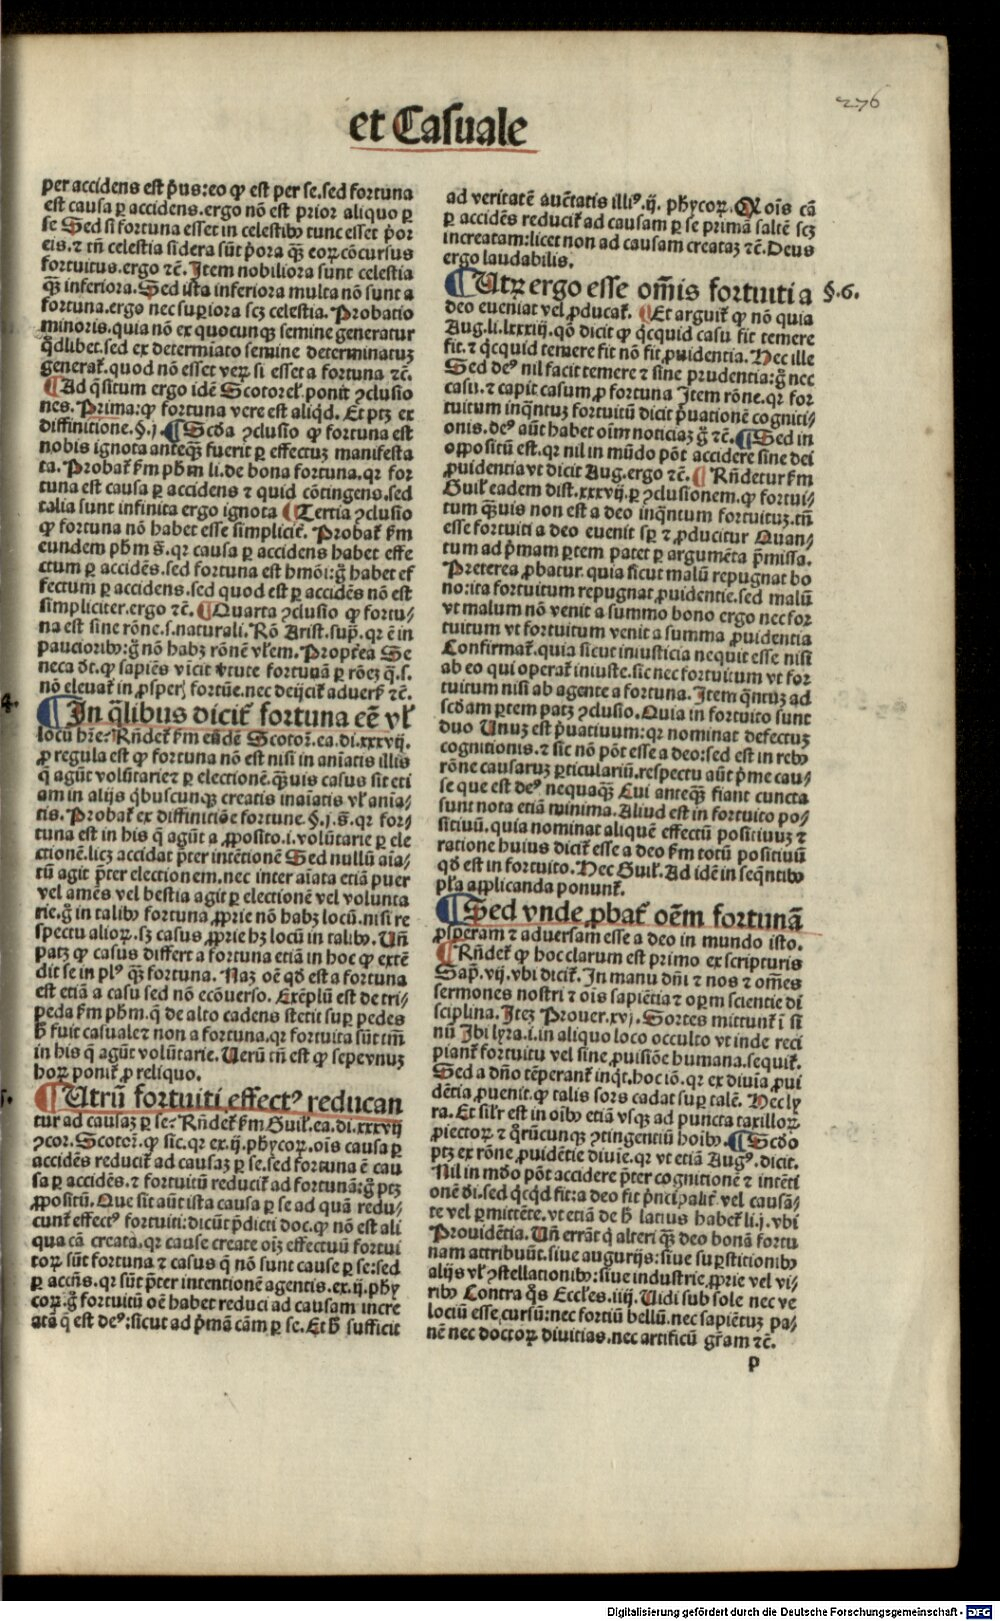 276
et Casuale
per accidens est p̄us:eo ꝙ est per se.sed fortuna
est causa ꝑ accidens.ergo nō est prior aliquo ꝑ
se Sed si fortuna esset in celestibꝰ tunc esset p̄or
eis.⁊ tn̄ celestia sidera sūt p̄ora qꝫ eoꝝ cōcursus
fortuitus.ergo ⁊c̄. Item nobiliora sunt celestia
qꝫ inferiora. Sed ista inferiora multa nō sunt a
fortuna.ergo nec superiora scꝫ celestia. Probatio
minoris.quia nō ex quocunqꝫ semine generatur
qd̄libet.sed ex determiato semine determinatuꝫ
generat̄.quod nō esset veꝝ si esset a fortuna ⁊c̄.
¶ Ad q̄situm ergo idē Scotorel̄.ponit ꝯclusio
nes. Prima:ꝙ fortuna vere est aliqd̄. Et ptꝫ ex
diffinitione.§.j. ¶ Scd̄a ꝯclusio ꝙ fortuna est
nobis ignota anteqꝫ fuerit ꝑ effectus manifesta
ta. Probat̄ fm̄ phm̄ li.de bona fortuna.qr for
tuna est causa ꝑ accidens ⁊ quid cōtingens.sed
talia sunt infinita ergo ignota ¶ Tertia ꝯclusio
ꝙ fortuna nō habet esse simplicit̄. Probat̄ fm̄
eundem phm̄ s̄.qr causa ꝑ accidens habet effe
ctum ꝑ accidēs.sed fortuna est hmōi:ḡ habet ef
fectum ꝑ accidens.sed quod est ꝑ accidēs nō est
simpliciter.ergo ⁊c̄. ¶ Quarta ꝯclusio ꝙ fortu-
na est sine rōne.s.naturali. Rō Arist.sup̄.qr ē in
paucioribꝰ:ḡ nō habꝫ rōnē vl̄em. Propt̄ea Se
neca d̄t.ꝙ sapiēs vīcit v̄tute fortunā ꝑ rōeꝫ q̄.s.
nō eleuat̄ in ꝓsperꝭ fortūe.nec deijcit̄ aduerſ̄ ⁊c̄.
4.
¶ In q̄libus dicit̄ fortuna eē vl̄
locū hr̄e? Rn̄det̄ fm̄ eūdē Scotor̄.ea.di.xxxvij.
ꝓ regula est ꝙ fortuna nō est nisi in aniatis illis
q̄ agūt volūtarie⁊ ꝑ electionē.qꝫuis casus sit eti
am in alijs q̄buscunqꝫ creatis inaīatis vl̄ anīa-
tis. Probat̄ ex diffinitiōe fortune §.j.s̄.qr for-
tuna est in his q̄ agūt a ꝓposito.i.volūtarie ꝑ ele
ctionē.licꝫ accidat p̄ter intētionē Sed nullū aīa-
tū agit p̄ter electionem.nec inter aīata etiā puer
vel amēs vel bestia agit ꝑ electionē vel volunta
rie.ḡ in talibꝰ fortuna ꝓprie nō habꝫ locū.nisi re
spectu alioꝝ.sꝫ casus ꝓprie hꝫ locū in talibꝰ. Un̄
patꝫ ꝙ casus differt a fortuna etiā in hoc ꝙ extē
dit se in pl̄ꝰ qꝫ fortuna. Naꝫ oē qd̄ est a fortuna
est etiā a casu sed nō ecōuerso. Exēplū est de tri-
peda fm̄ phm̄.q̄ de alto cadens stetit sup̄ pedes
h̄ fuit casuale⁊ non a fortuna.qr fortuita sūt tm̄
in his q̄ agūt volūtarie. Uerū tn̄ est ꝙ sepevnuꝫ
hoꝝ ponit̄ ꝓ reliquo.
5.
¶ Utrū fortuiti effectꝰ reducan
tur ad causaꝫ ꝑ se? Rn̄det̄ fm̄ Guil̄.ea.di.xxxvij
ꝯcor.Scotor̄.ꝙ sic.qr ex.ij.phycoꝝ.oīs causa ꝑ
accidēs reducit̄ ad causaꝫ ꝑ se.sed fortuna ē cau
sa ꝑ accidēs.⁊ fortuitū reducit̄ ad fortunā:ḡ ptꝫ
ꝓpositū. Que sit aūt ista causa ꝑ se ad quā redu-
cunt̄ effectꝰ fortuiti:dicūt p̄dicti doc.ꝙ nō est ali
qua cā creata.qr cause create oiꝫ effectuū fortui
toꝝ sūt fortuna ⁊ casus q̄ nō sunt cause ꝑ se:sed
ꝑ accn̄s.qr sūt p̄ter intentionē agentis.ex.ij.phy
coꝝ.ḡ fortuitū oē habet reduci ad causam incre
atā q̄ est deꝰ:sicut ad p̄mā cām ꝑ se. Et h̄ sufficit
ad veritatē auc̄tatis illiꝰ.ij.phycoꝝ. Qr oīs cā
ꝑ accidēs reducit̄ ad causam ꝑ se primā saltē scꝫ
increatam:licet non ad causam creataꝫ ⁊c̄. Deus
ergo laudabilis.
¶ Utꝝ ergo esse om̄is fortuiti a §.6.
deo eueniat vel ꝓducat̄. ¶ Et arguit̄ ꝙ nō quia
Aug.li.lxxxiij.qō dicit ꝙ qcquid casu fit temere
fit.⁊ qcquid temere fit nō fit ꝓuidentia. Hec ille
Sed deꝰ nil facit temere ⁊ sine prudentia:ḡ nec
casu.⁊ capit casum ꝓ fortuna Item rōne.qr for
tuitum inqn̄tuꝫ fortuitū dicit p̄uationē cogniti-
onis.deꝰ aūt habet oīm noticiaꝫ ḡ ⁊c̄. ¶ Sed in
oppositū est.qr nil in mūdo pōt accidere sine dei
ꝓuidentia vt dicit Aug.ergo ⁊c̄. ¶ Rn̄detur fm̄
Guil̄ eadem dist.xxxvij.ꝑ ꝯclusionem.ꝙ fortui-
tum qꝫuis non est a deo inqn̄tum fortuituꝫ.tn̄
esse fortuiti a deo euenit sꝑ ⁊ ꝓducitur Quan-
tum ad p̄mam ꝑtem patet ꝑ argumēta p̄missa.
Preterea ꝓbatur.quia sicut malū repugnat bo
no:ita fortuitum repugnat ꝓuidentie.sed malū
vt malum nō venit a summo bono ergo nec for
tuitum vt fortuitum venit a summa ꝓuidentia
Confirmat̄.quia sicut iniusticia nequit esse nisi
ab eo qui operat̄ iniuste.sic nec fortuitum vt for
tuitum nisi ab agente a fortuna. Item qn̄tuꝫ ad
scd̄am ꝑtem patꝫ ꝯclusio. Quia in fortuito sunt
duo Unuꝫ est p̄uatiuum:qr nominat defectuꝫ
cognitionis.⁊ sic nō pōt esse a deo:sed est in rebꝰ
rōne causaruꝫ ꝑticulariū.respectu aūt p̄me cau-
se que est deꝰ nequaqꝫ Cui anteqꝫ fiant cuncta
sunt nota etiā minima. Aliud est in fortuito po-
sitiuū.quia nominat aliquē effectū positiuuꝫ ⁊
ratione huius dicit̄ esse a deo fm̄ totū positiuū
qd̄ est in fortuito. Hec Guil̄. Ad idē in seqn̄tibꝰ
pl̄a applicanda ponunt̄.
¶ Sed vnde ꝓbat̄ oēm fortunā
ꝓsperam ⁊ aduersam esse a deo in mundo isto.
¶ Rn̄det̄ ꝙ hoc clarum est primo ex scripturis
Sap̄.vij.vbi dicit̄. In manu dn̄i ⁊ nos ⁊ om̄es
sermones nostri ⁊ oīs sapiētia⁊ oꝑm scientie di
sciplina. Iteꝫ Prouer.xvj. Sortes mittunt̄ ī si
nū Ibi lyra.i.in aliquo loco occulto vt inde reci
piant̄ fortuitu vel sine ꝓuisiōe humana.sequit̄.
Sed a dn̄o tēperant̄ inqt̄.hoc iō.qr ex diuīa ꝓui
dētia ꝓuenit.ꝙ talis sors cadat sup̄ talē. Hec ly
ra. Et sil̄r est in oībꝰ etiā vsqꝫ ad puncta taxilloꝝ
ꝓiectoꝝ ⁊ qr̄ūcunqꝫ ꝯtingentiū hoībꝰ. ¶ Scd̄o
ptꝫ ex rōne ꝓuidētie diuie.qr vt etiā Augꝰ.dicit.
Nil in mūdo pōt accidere p̄ter cognitionē ⁊ intēti
onē dei.sed qcqd fit:a deo fit p̄ncipalit̄ vel causā-
te vel ꝑmittēte.vt etiā de h̄ latius habet̄ li.j.vbi
Prouidētia. Un̄ errāt q̄ alteri qꝫ deo bonā fortu
nam attribuūt.siue augurijs:siue suꝑstitionibꝰ
alijs vl̄ ꝯstellationibꝰ:siue industrie.ꝓprie vel vi-
ribꝰ Contra qs̄ Eccles.iiij. Uidi sub sole nec ve
lociū esse cursū:nec fortiū bellū.nec sapiētuꝫ pa-
nē nec doctoꝝ diuitias.nec artificū gr̄am ⁊c̄.
p
Digitalisierung gefördert durch die Deutsche Forschungsgemeinschaft - DFG